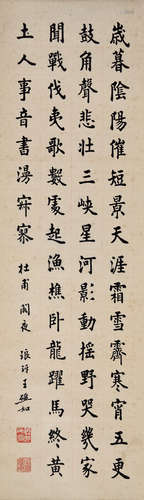 歲暮陰陽催短景天涯霜雪霽寒宵五更
鼓角聲悲壯三峽星河影動搖野哭幾家
聞戰伐夷歌數處起漁樵臥龍躍馬終黃
土人事音書漫寂寥
杜甫閣夜 王